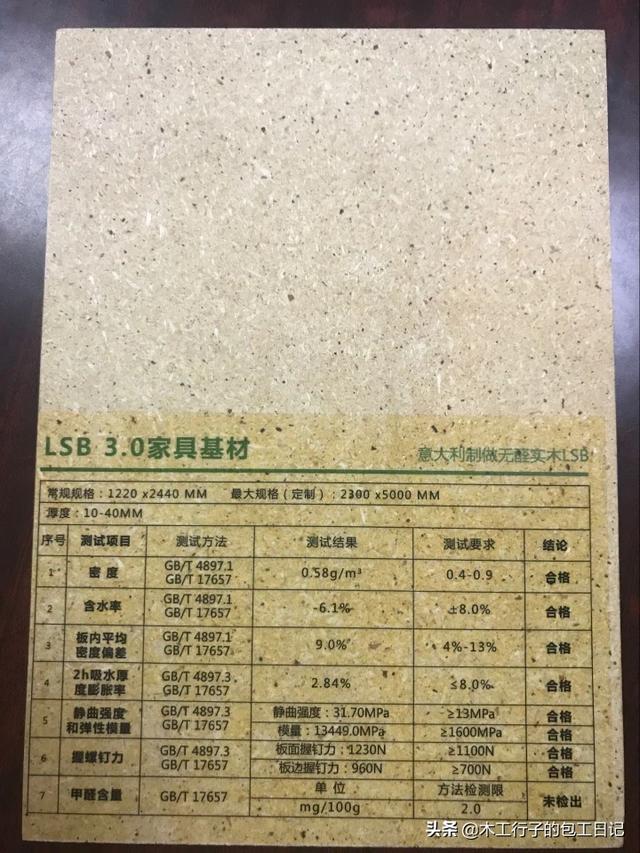 LSB 3.0家具基材
意大利制做无醛实木LSB
常规规格：1220 x2440 MM 最大规格（定制）：2300 x5000 MM
厚度：10-40MM
序号 测试项目 测试方法 测试结果 测试要求 结论
1 密度 GB/T 4897.1 GB/T 17657 0.58g/m³ 0.4-0.9 合格
2 含水率 GB/T 4897.1 GB/T 17657 -6.1% ±8.0% 合格
3 板内平均密度偏差 GB/T 4897.1 GB/T 17657 9.0% 4%-13% 合格
4 2h吸水厚度膨胀率 GB/T 4897.3 GB/T 17657 2.84% ≤8.0% 合格
5 静曲强度和弹性模量 GB/T 4897.3 GB/T 17657 静曲强度：31.70MPa ≥13MPa 合格
模量：13449.0MPa ≥1600MPa 合格
6 握螺钉力 GB/T 4897.3 GB/T 17657 板面握钉力：1230N ≥1100N 合格
板边握钉力：960N ≥700N 合格
7 甲醛含量 GB/T 17657 单 位 方法检测限 未检出
mg/100g 2.0
头条 @木工行子的包工日记